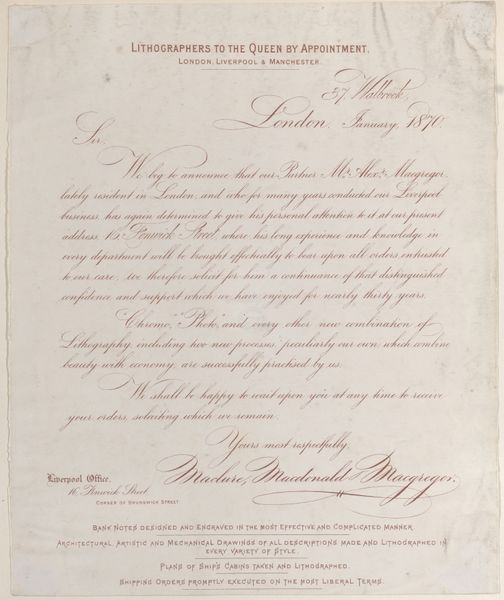 LITHOGRAPHERS TO THE QUEEN BY APPOINTMENT.
LONDON, LIVERPOOL & MANCHESTER.
37, Walbrook,
London, January, 1870.
Sir,
We beg to announce that our Partner Mr. Alexr. Macgregor,
lately resident in London, and who for many years conducted our Liverpool
business, has again determined to give his personal attention to it at our present
address, Fenwick Street, where his long experience and knowledge in
every department will be brought effectually to bear upon all orders entrusted
to our care; we therefore solicit for him a continuance of that distinguished
confidence and support which we have enjoyed for nearly thirty years.
"Chromo," "Photo," and every other new combination of
Lithography, including two new processes (peculiarly our own) which combine
beauty with economy, are successfully practised by us.
We shall be happy to wait upon you at any time to receive
your orders, soliciting which we remain
Yours most respectfully,
Maclure, Macdonald & Macgregor.
Liverpool Office,
16, Fenwick Street,
CORNER OF BRUNSWICK STREET
BANK NOTES DESIGNED AND ENGRAVED IN THE MOST EFFECTIVE AND COMPLICATED MANNER.
ARCHITECTURAL, ARTISTIC AND MECHANICAL DRAWINGS OF ALL DESCRIPTIONS MADE AND LITHOGRAPHED IN
EVERY VARIETY OF STYLE.
PLANS OF SHIP'S CABINS TAKEN AND LITHOGRAPHED.
SHIPPING ORDERS PROMPTLY EXECUTED ON THE MOST LIBERAL TERMS.